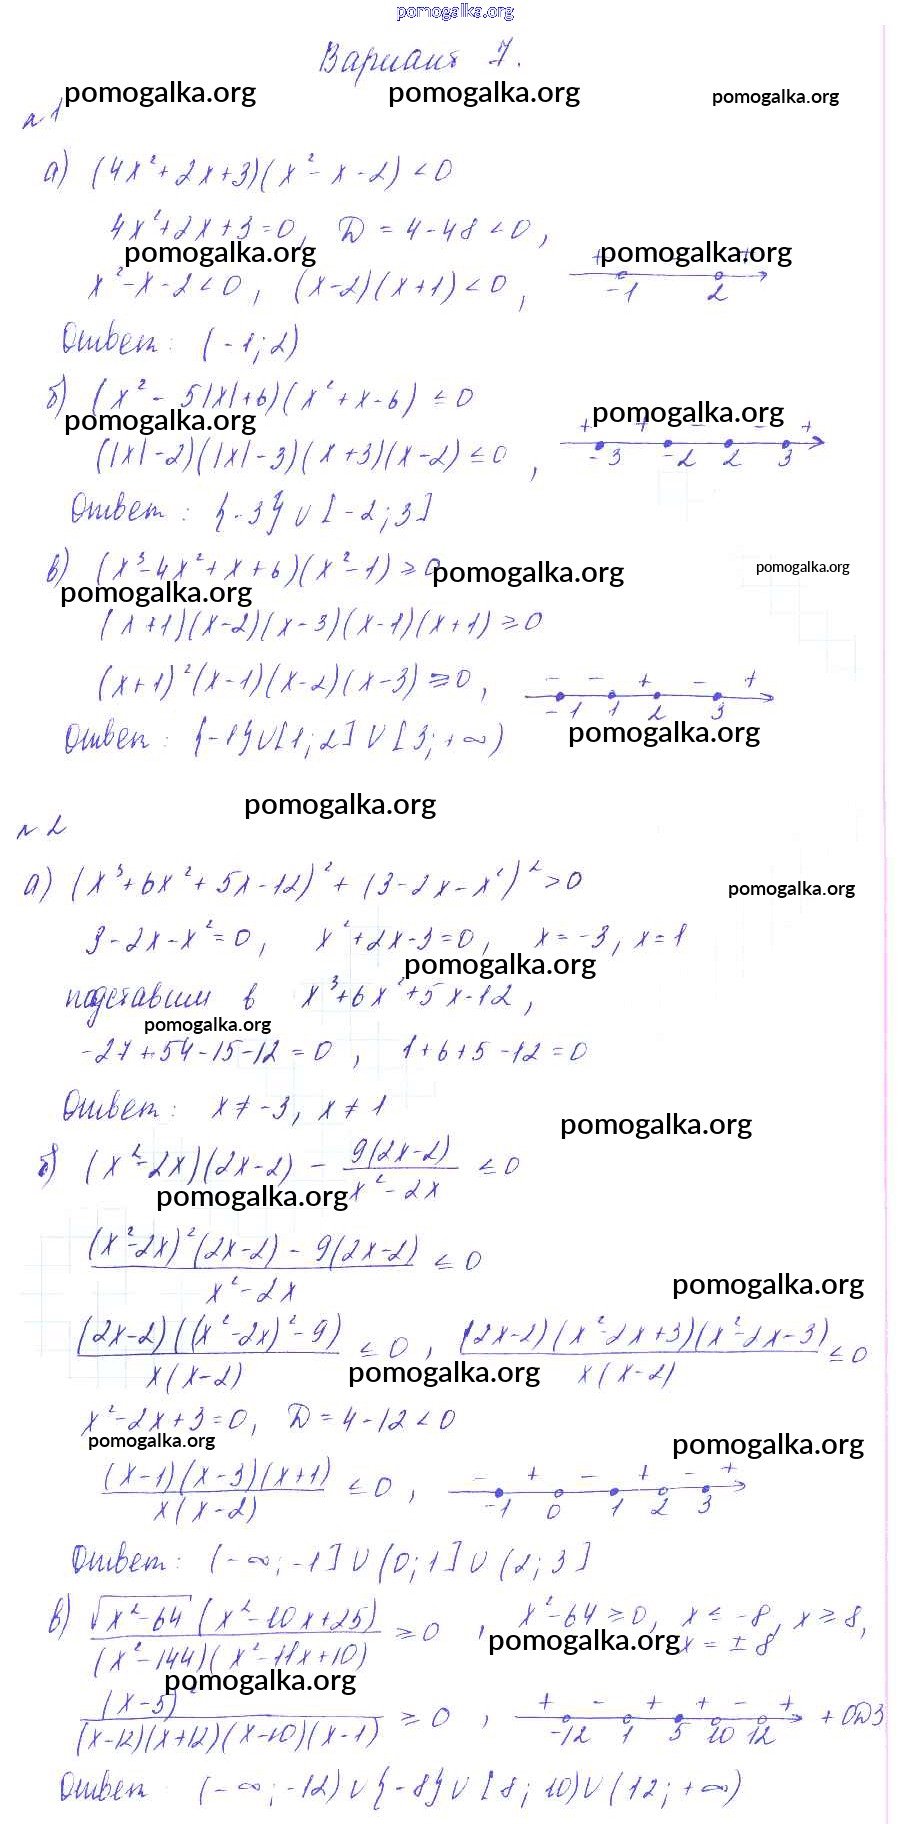 pomogalka.org
Вариант 7.
pomogalka.org pomogalka.org pomogalka.org
№1
а) (4x²+2x+3)(x²-x-2)<0
4x²+2x+3=0, D=4-48<0,
pomogalka.org pomogalka.org
x²-x-2<0, (x-2)(x+1)<0, + - + -1 2
Ответ: (-1;2)
б) (x²-5|x|+6)(x²+x-6)≤0
pomogalka.org pomogalka.org
(|x|-2)(|x|-3)(x+3)(x-2)≤0, + + - - + -3 -2 2 3
Ответ: {-3}∪[-2;3]
в) (x³-4x²+x+6)(x²-1)≥0
pomogalka.org pomogalka.org pomogalka.org
(x+1)(x-2)(x-3)(x-1)(x+1)≥0
(x+1)²(x-1)(x-2)(x-3)≥0, - - + - + -1 1 2 3
Ответ: {-1}∪[1;2]∪[3;+∞)
pomogalka.org
pomogalka.org
№2
а) (x³+6x²+5x-12)²+(3-2x-x²)²>0
pomogalka.org
3-2x-x²=0, x²+2x-3=0, x=-3, x=1
pomogalka.org
подставим в x³+6x²+5x-12,
pomogalka.org
-27+54-15-12=0, 1+6+5-12=0
Ответ: x≠-3, x≠1
pomogalka.org
б) (x²-2x)(2x-2) - 9(2x-2)/(x²-2x) ≤0
pomogalka.org
((x²-2x)²(2x-2)-9(2x-2))/(x²-2x) ≤0
pomogalka.org
(2x-2)((x²-2x)²-9)/(x(x-2)) ≤0, (2x-2)(x²-2x+3)(x²-2x-3)/(x(x-2)) ≤0
pomogalka.org
x²-2x+3=0, D=4-12<0
pomogalka.org pomogalka.org
(x-1)(x-3)(x+1)/(x(x-2)) ≤0, - + - + - + -1 0 1 2 3
Ответ: (-∞;-1]∪(0;1]∪(2;3]
в) √(x²-64)(x²-10x+25)/((x²-144)(x²-11x+10)) ≥0, x²-64≥0, x≤-8, x≥8,
pomogalka.org x=±8
pomogalka.org
(x-5)²/((x-12)(x+12)(x-10)(x-1)) ≥0, + - + + - + -12 1 5 10 12 + ОДЗ
Ответ: (-∞;-12)∪{-8}∪[8;10)∪(12;+∞)